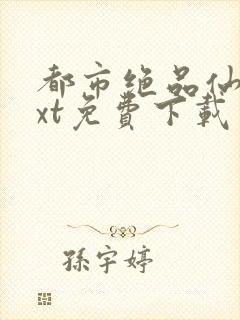 都市绝品仙
xt免費下載
孫宇婷